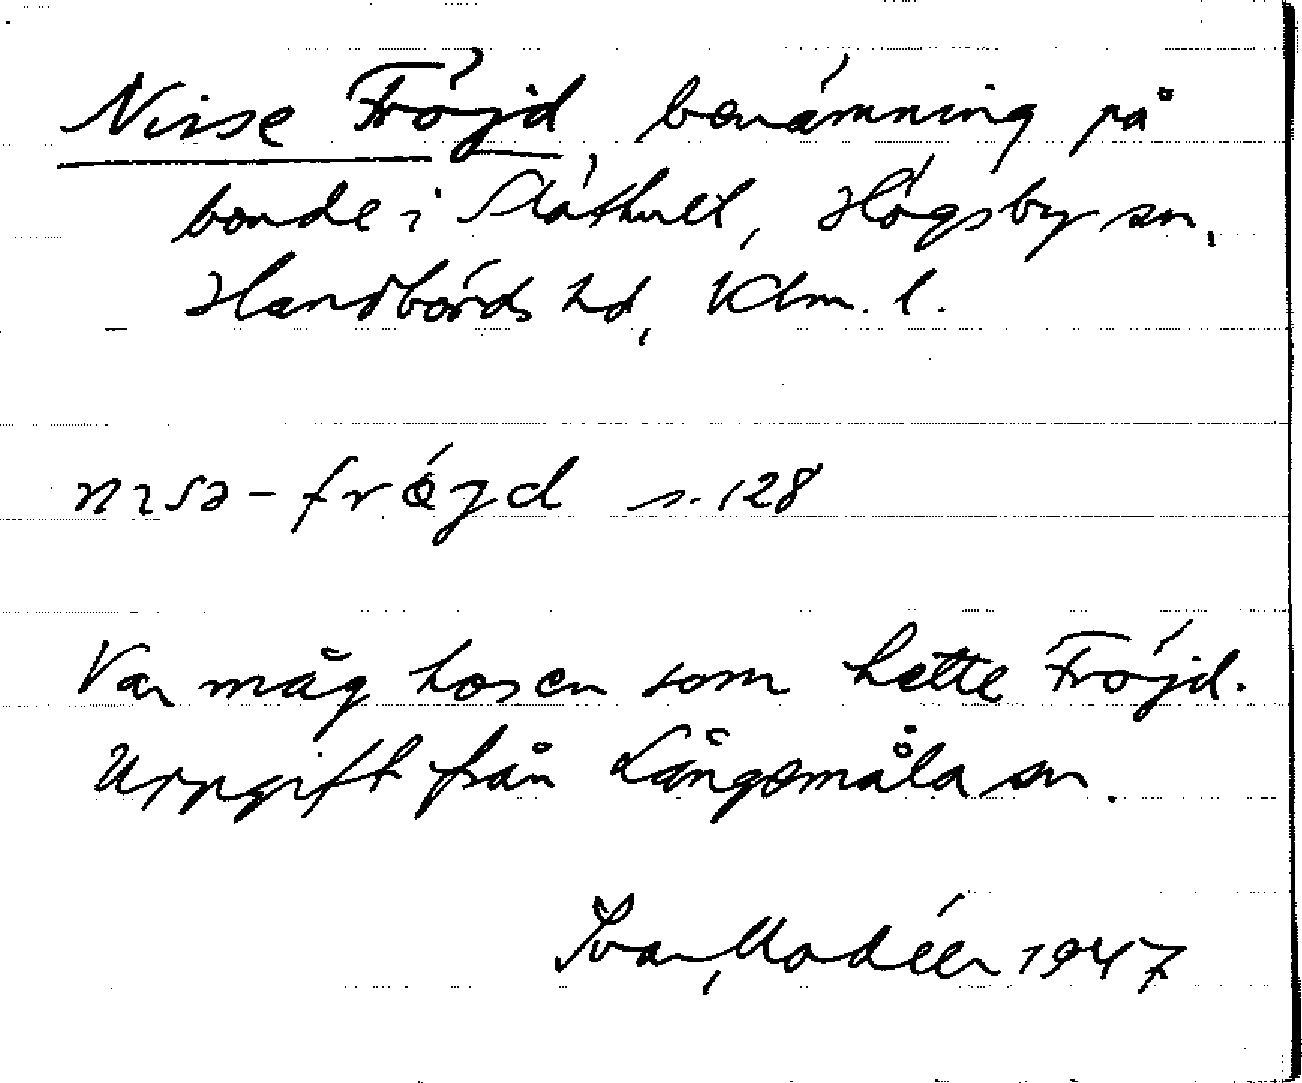 Nisse Fröjd, benämning på
bonde i Släthult, Högsby sn,
Handbörds hd, Klm. l.
nɪsə-frǿyd s. 128
Var måg hos en som hette Fröjd.
Uppgift från Långemåla sn.
Ivar Modéer 1947